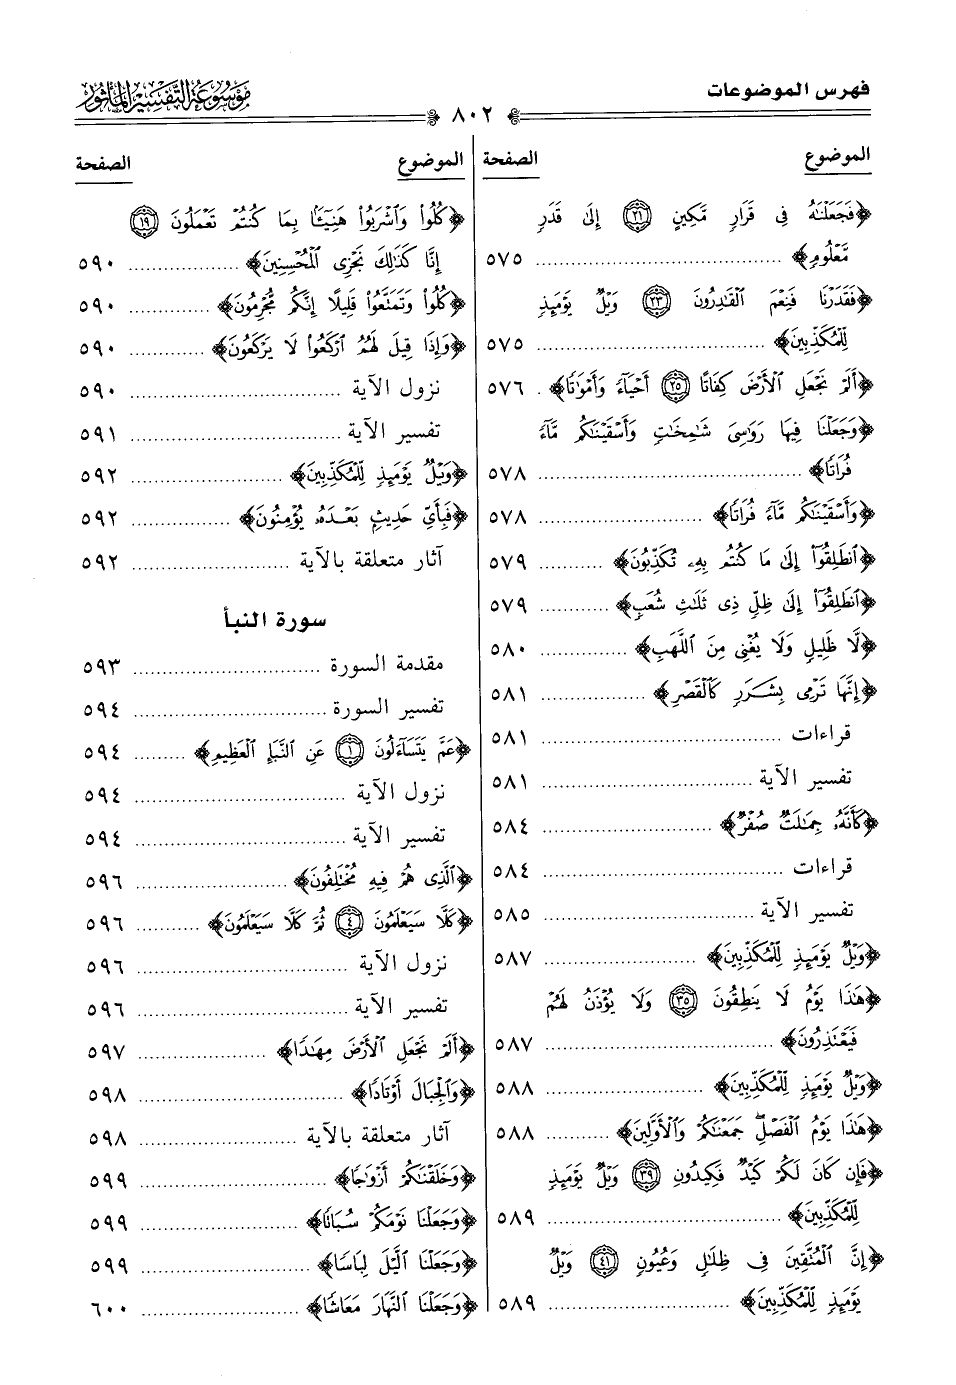 فهرس الموضوعات
٨٠٢
موسوعة التفسير المأثور
الموضوع الصفحة
﴿فَجَعَلْنَٰهُ فِى قَرَارٍ مَّكِينٍ ٢١ إِلَىٰ قَدَرٍ
مَّعْلُومٍ﴾ ٥٧٥
﴿فَقَدَرْنَا فَنِعْمَ ٱلْقَٰدِرُونَ ٢٣ وَيْلٌ يَوْمَئِذٍ
لِّلْمُكَذِّبِينَ﴾ ٥٧٥
﴿أَلَمْ نَجْعَلِ ٱلْأَرْضَ كِفَاتًا ٢٥ أَحْيَآءً وَأَمْوَٰتًا﴾ ٥٧٦
﴿وَجَعَلْنَا فِيهَا رَوَٰسِىَ شَٰمِخَٰتٍ وَأَسْقَيْنَٰكُم مَّآءً
فُرَاتًا﴾ ٥٧٨
﴿وَأَسْقَيْنَٰكُم مَّآءً فُرَاتًا﴾ ٥٧٨
﴿ٱنطَلِقُوٓا۟ إِلَىٰ مَا كُنتُم بِهِۦ تُكَذِّبُونَ﴾ ٥٧٩
﴿ٱنطَلِقُوٓا۟ إِلَىٰ ظِلٍّ ذِى ثَلَٰثِ شُعَبٍ﴾ ٥٧٩
﴿لَّا ظَلِيلٍ وَلَا يُغْنِى مِنَ ٱللَّهَبِ﴾ ٥٨٠
﴿إِنَّهَا تَرْمِى بِشَرَرٍ كَٱلْقَصْرِ﴾ ٥٨١
قراءات ٥٨١
تفسير الآية ٥٨١
﴿كَأَنَّهُۥ جِمَٰلَتٌ صُفْرٌ﴾ ٥٨٤
قراءات ٥٨٤
تفسير الآية ٥٨٥
﴿وَيْلٌ يَوْمَئِذٍ لِّلْمُكَذِّبِينَ﴾ ٥٨٧
﴿هَٰذَا يَوْمُ لَا يَنطِقُونَ ٣٥ وَلَا يُؤْذَنُ لَهُمْ
فَيَعْتَذِرُونَ﴾ ٥٨٧
﴿وَيْلٌ يَوْمَئِذٍ لِّلْمُكَذِّبِينَ﴾ ٥٨٨
﴿هَٰذَا يَوْمُ ٱلْفَصْلِ جَمَعْنَٰكُمْ وَٱلْأَوَّلِينَ﴾ ٥٨٨
﴿فَإِن كَانَ لَكُمْ كَيْدٌ فَكِيدُونِ ٣٩ وَيْلٌ يَوْمَئِذٍ
لِّلْمُكَذِّبِينَ﴾ ٥٨٩
﴿إِنَّ ٱلْمُتَّقِينَ فِى ظِلَٰلٍ وَعُيُونٍ ٤١ وَيْلٌ
يَوْمَئِذٍ لِّلْمُكَذِّبِينَ﴾ ٥٨٩
الموضوع الصفحة
﴿كُلُوا۟ وَٱشْرَبُوا۟ هَنِيٓـًٔۢا بِمَا كُنتُمْ تَعْمَلُونَ ١٩
إِنَّا كَذَٰلِكَ نَجْزِى ٱلْمُحْسِنِينَ﴾ ٥٩٠
﴿كُلُوا۟ وَتَمَتَّعُوا۟ قَلِيلًا إِنَّكُم مُّجْرِمُونَ﴾ ٥٩٠
﴿وَإِذَا قِيلَ لَهُمُ ٱرْكَعُوا۟ لَا يَرْكَعُونَ﴾ ٥٩٠
نزول الآية ٥٩٠
تفسير الآية ٥٩١
﴿وَيْلٌ يَوْمَئِذٍ لِّلْمُكَذِّبِينَ﴾ ٥٩٢
﴿فَبِأَىِّ حَدِيثٍۭ بَعْدَهُۥ يُؤْمِنُونَ﴾ ٥٩٢
آثار متعلقة بالآية ٥٩٢
سورة النبأ
مقدمة السورة ٥٩٣
تفسير السورة ٥٩٤
﴿عَمَّ يَتَسَآءَلُونَ ١ عَنِ ٱلنَّبَإِ ٱلْعَظِيمِ﴾ ٥٩٤
نزول الآية ٥٩٤
تفسير الآية ٥٩٤
﴿ٱلَّذِى هُمْ فِيهِ مُخْتَلِفُونَ﴾ ٥٩٦
﴿كَلَّا سَيَعْلَمُونَ ٤ ثُمَّ كَلَّا سَيَعْلَمُونَ﴾ ٥٩٦
نزول الآية ٥٩٦
تفسير الآية ٥٩٦
﴿أَلَمْ نَجْعَلِ ٱلْأَرْضَ مِهَٰدًا﴾ ٥٩٧
﴿وَٱلْجِبَالَ أَوْتَادًا﴾ ٥٩٨
آثار متعلقة بالآية ٥٩٨
﴿وَخَلَقْنَٰكُمْ أَزْوَٰجًا﴾ ٥٩٩
﴿وَجَعَلْنَا نَوْمَكُمْ سُبَاتًا﴾ ٥٩٩
﴿وَجَعَلْنَا ٱلَّيْلَ لِبَاسًا﴾ ٥٩٩
﴿وَجَعَلْنَا ٱلنَّهَارَ مَعَاشًا﴾ ٦٠٠